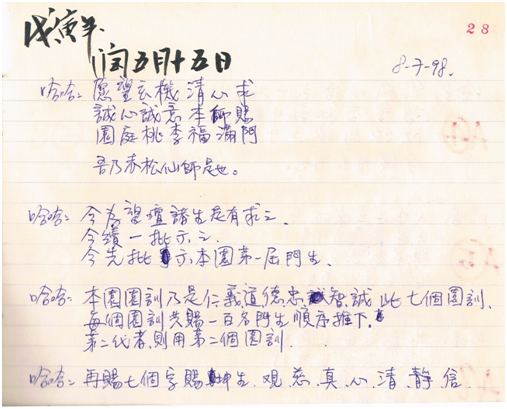 28
戊寅年
閏五月十五日
8-7-98.
哈哈: 愿望玄機清心求
誠心誠意本師賜
園庭桃李福滿門
吾乃赤松仙師是也。
哈哈: 今為望壇諸生是有求之.
今續一批示之.
今先批示本園第一屆門生.
哈哈: 本園園訓乃是仁義道德忠智誠此七個園訓.
每個園訓共賜一百名門生順序推下.
第二代者,則用第二個園訓.
哈哈: 再賜七個字賜坤生.观.慈.真.心.清.靜.信.